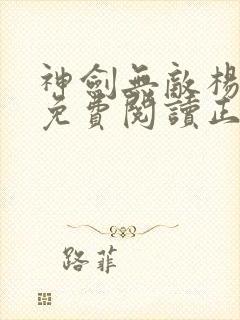 神劍無敵楊
免費閱讀正
路菲